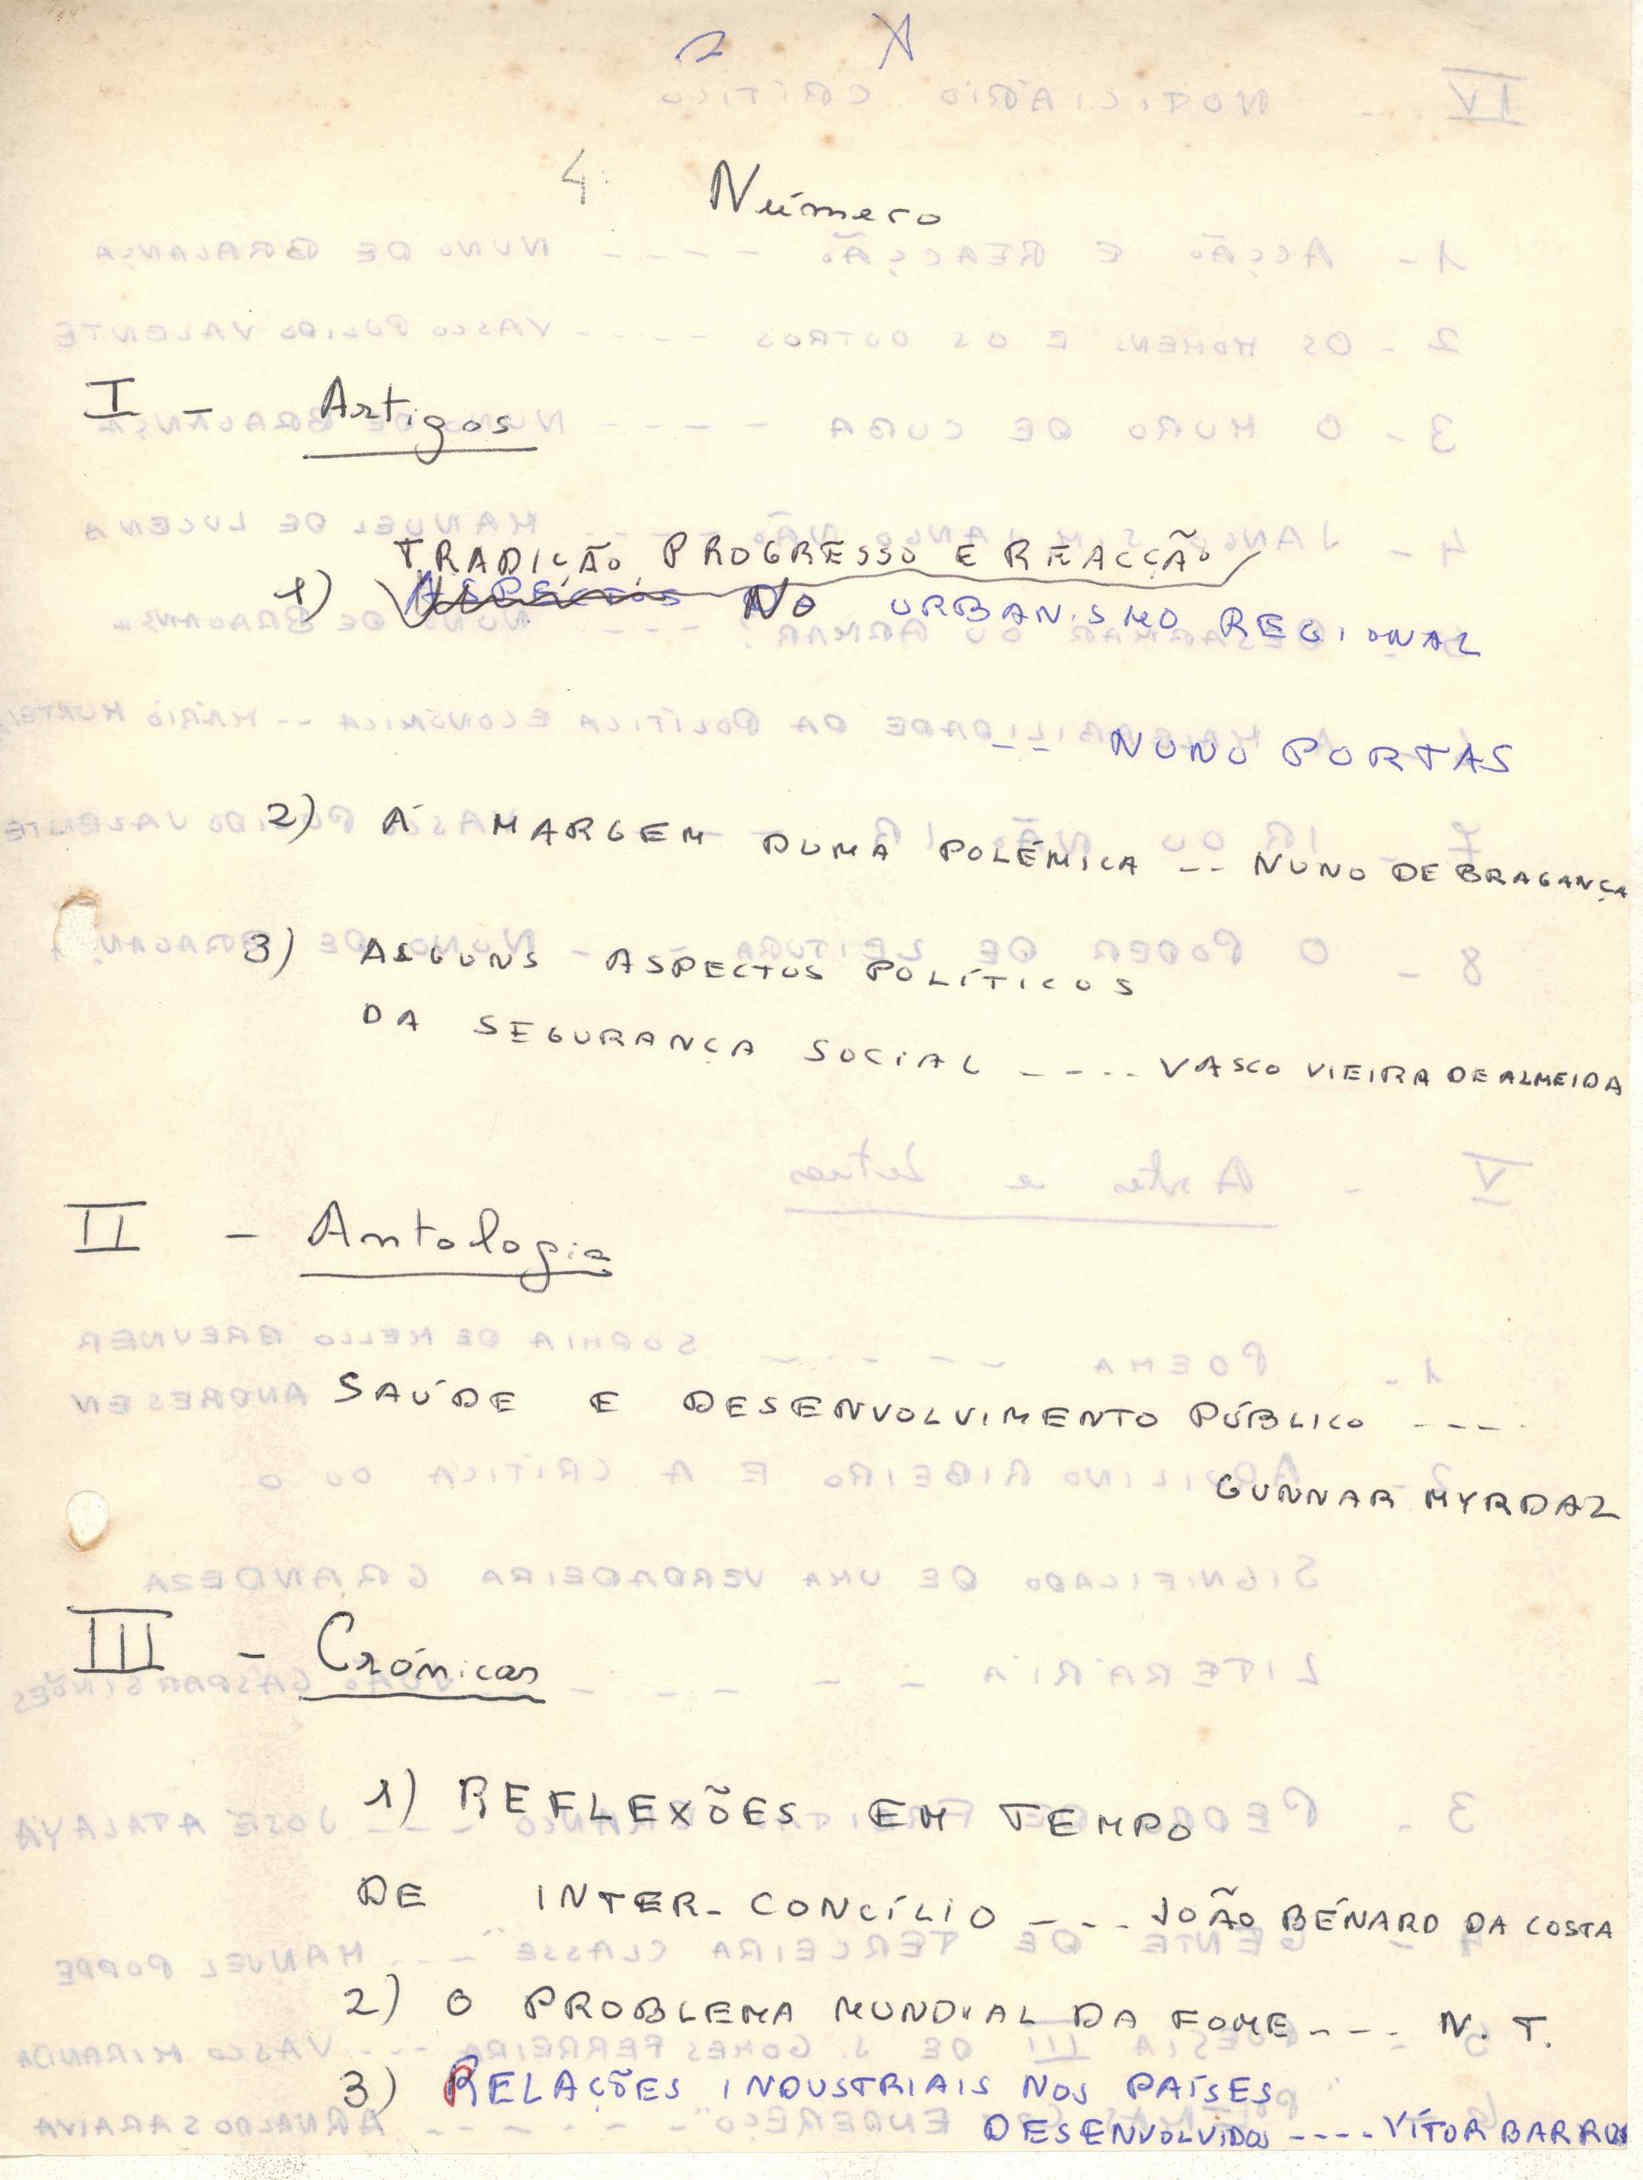 4 Número
I - Artigos
TRADIÇÃO, PROGRESSO E REACÇÃO
1) ASPECTOS NO URBANISMO REGIONAL
-- NUNO PORTAS
2) À MARGEM DUMA POLÉMICA -- NUNO DE BRAGANÇA
3) ALGUNS ASPECTOS POLÍTICOS
DA SEGURANÇA SOCIAL ---- VASCO VIEIRA DE ALMEIDA
II - Antologia
SAÚDE E DESENVOLVIMENTO PÚBLICO ----
GUNNAR MYRDAL
III - Crónicas
1) REFLEXÕES EM TEMPO
DE INTER-CONCÍLIO --- JOÃO BÉNARD DA COSTA
2) O PROBLEMA MUNDIAL DA FOME --- N. T.
3) RELAÇÕES INDUSTRIAIS NOS PAÍSES
DESENVOLVIDOS ---- VÍTOR BARROS